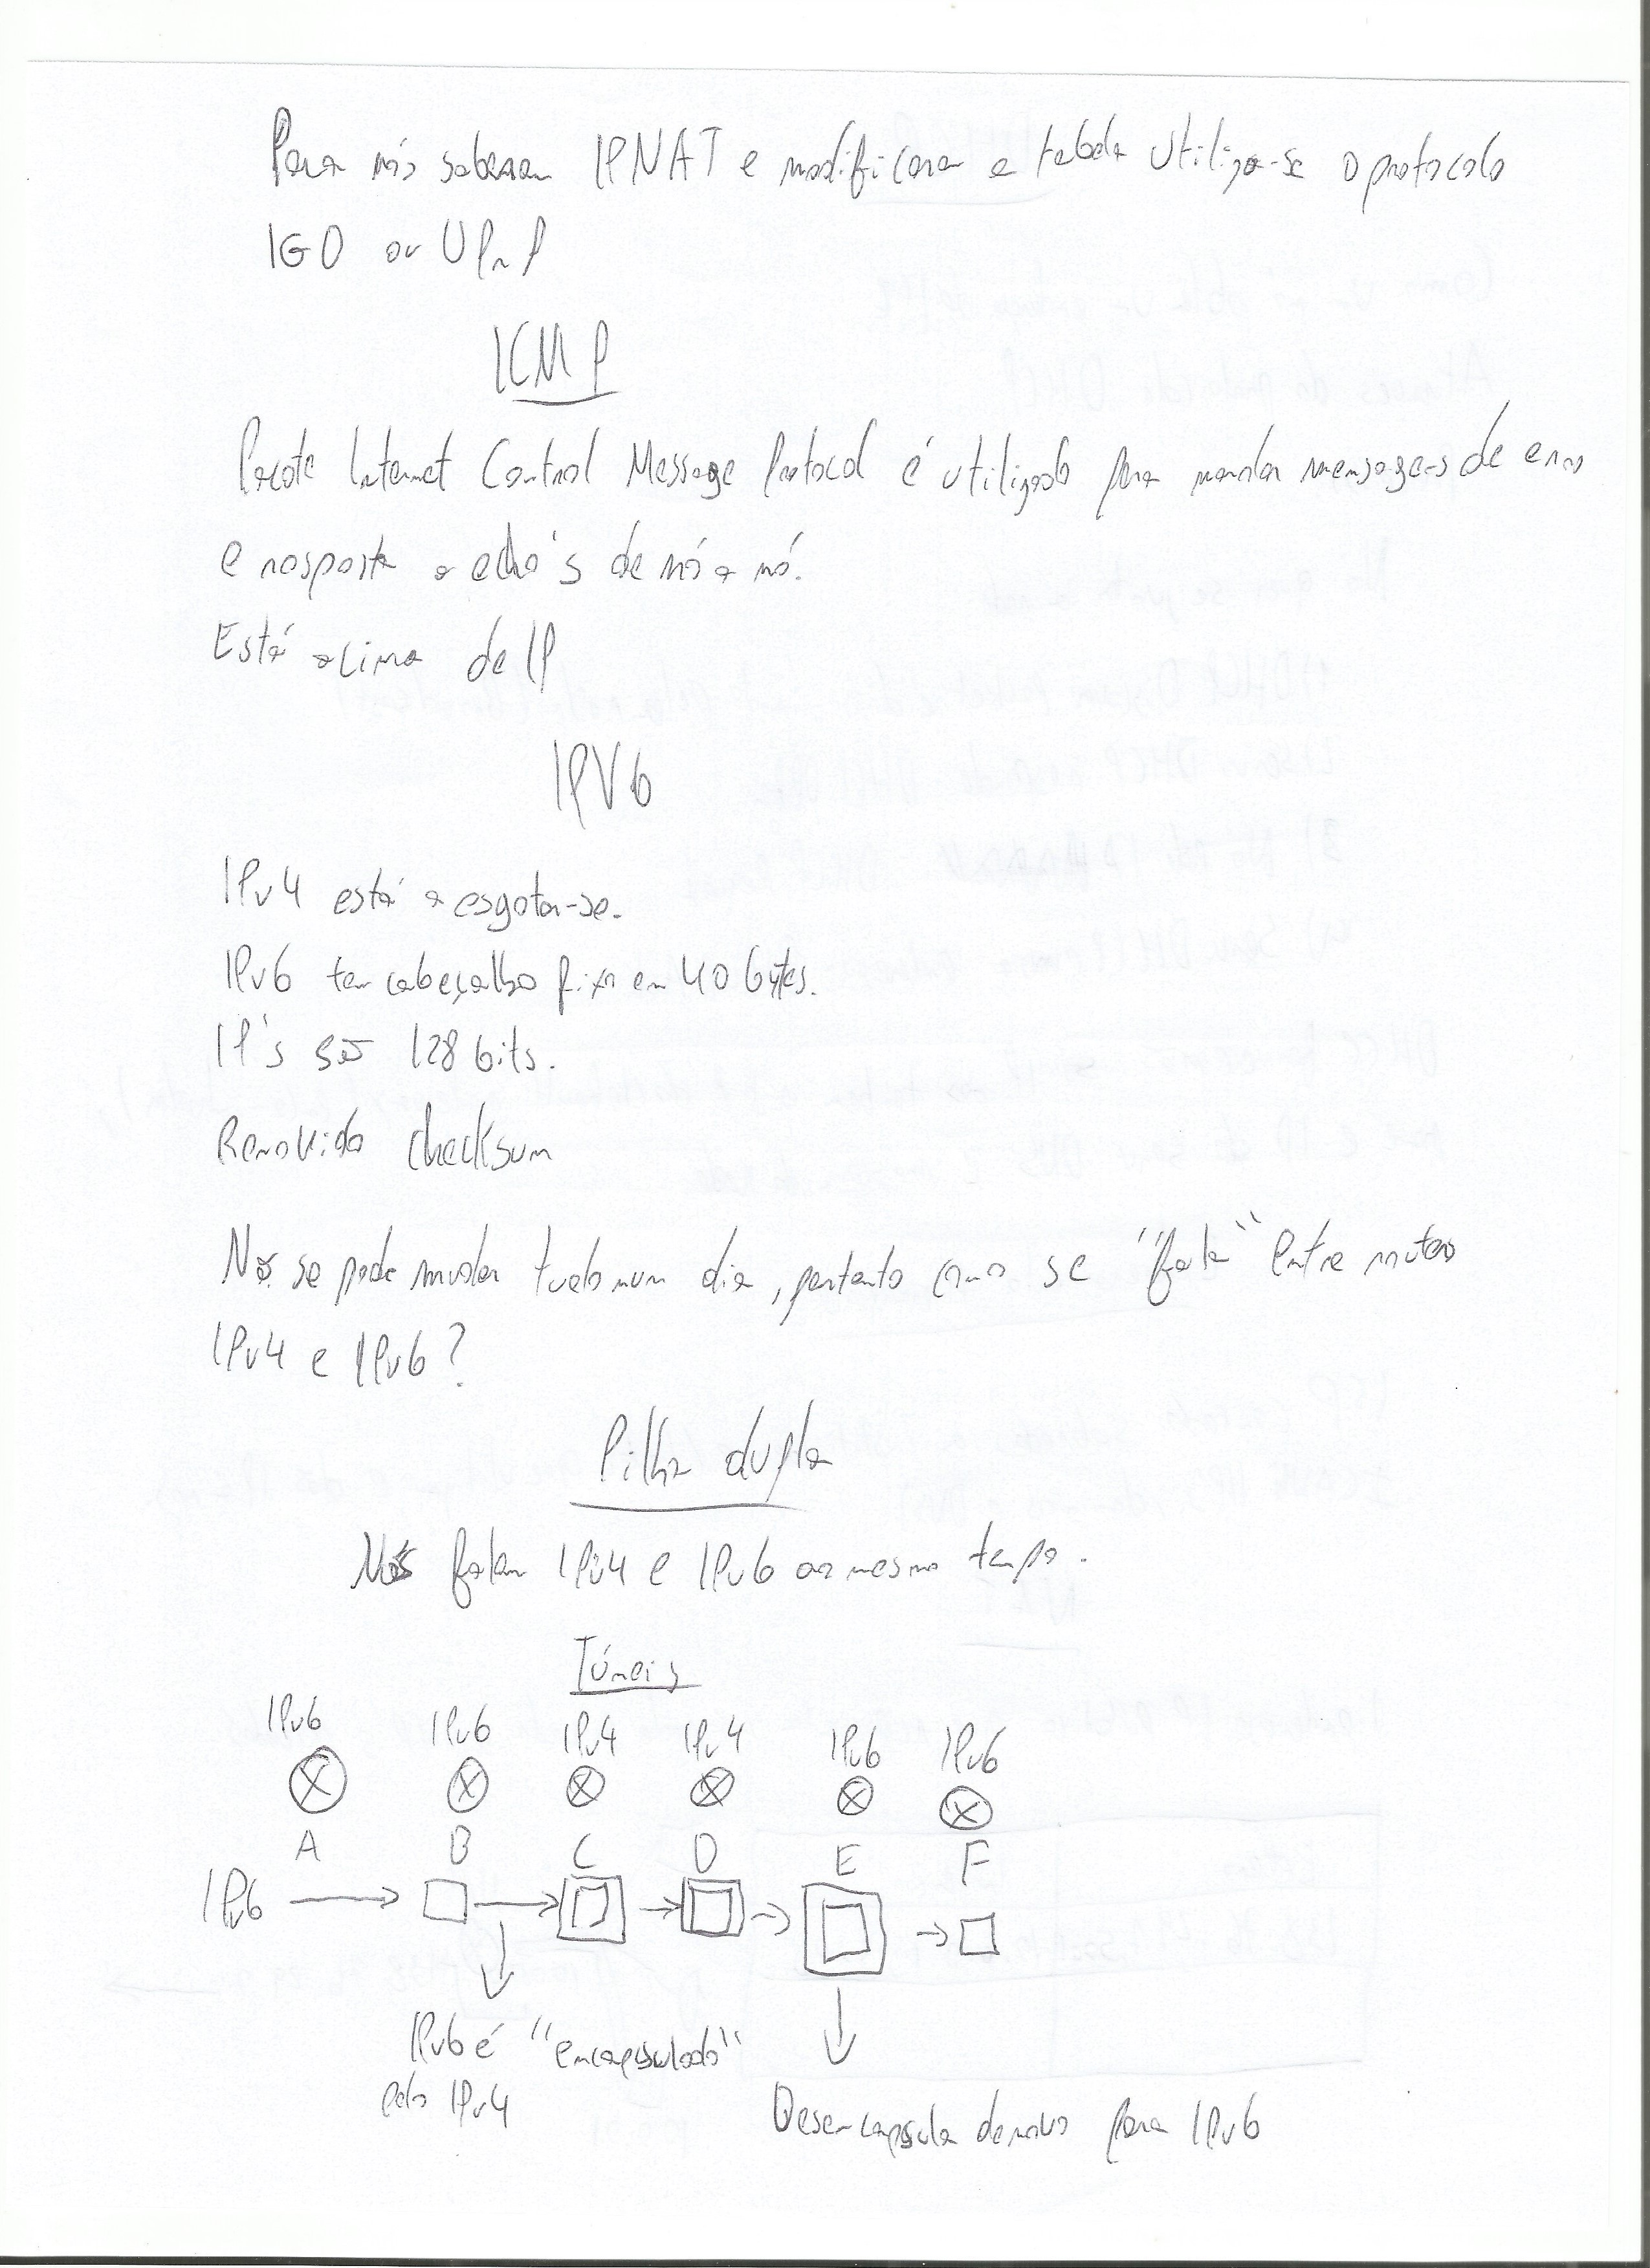 Para nós saberem IPNAT e modificarem a tabela utiliza-se o protocolo
IGD ou UPnP
ICMP
Pacote Internet Control Message Protocol é utilizado para mandar mensagens de erro
e resposta a echo's de nó a nó.
Está acima de IP
IPV6
IPv4 está a esgotar-se.
IPv6 tem cabeçalho fixo em 40 bytes.
IP's são 128 bits.
Removido checksum
Não se pode mudar tudo num dia, portanto como se "fala" entre routers
IPv4 e IPv6?
Pilha dupla
Nós falam IPv4 e IPv6 ao mesmo tempo.
Túneis
IPv6 IPv6 IPv4 IPv4 IPv6 IPv6
A B C D E F
IPv6
IPv6 é "encapsulado"
pelo IPv4
Desencapsula de novo para IPv6